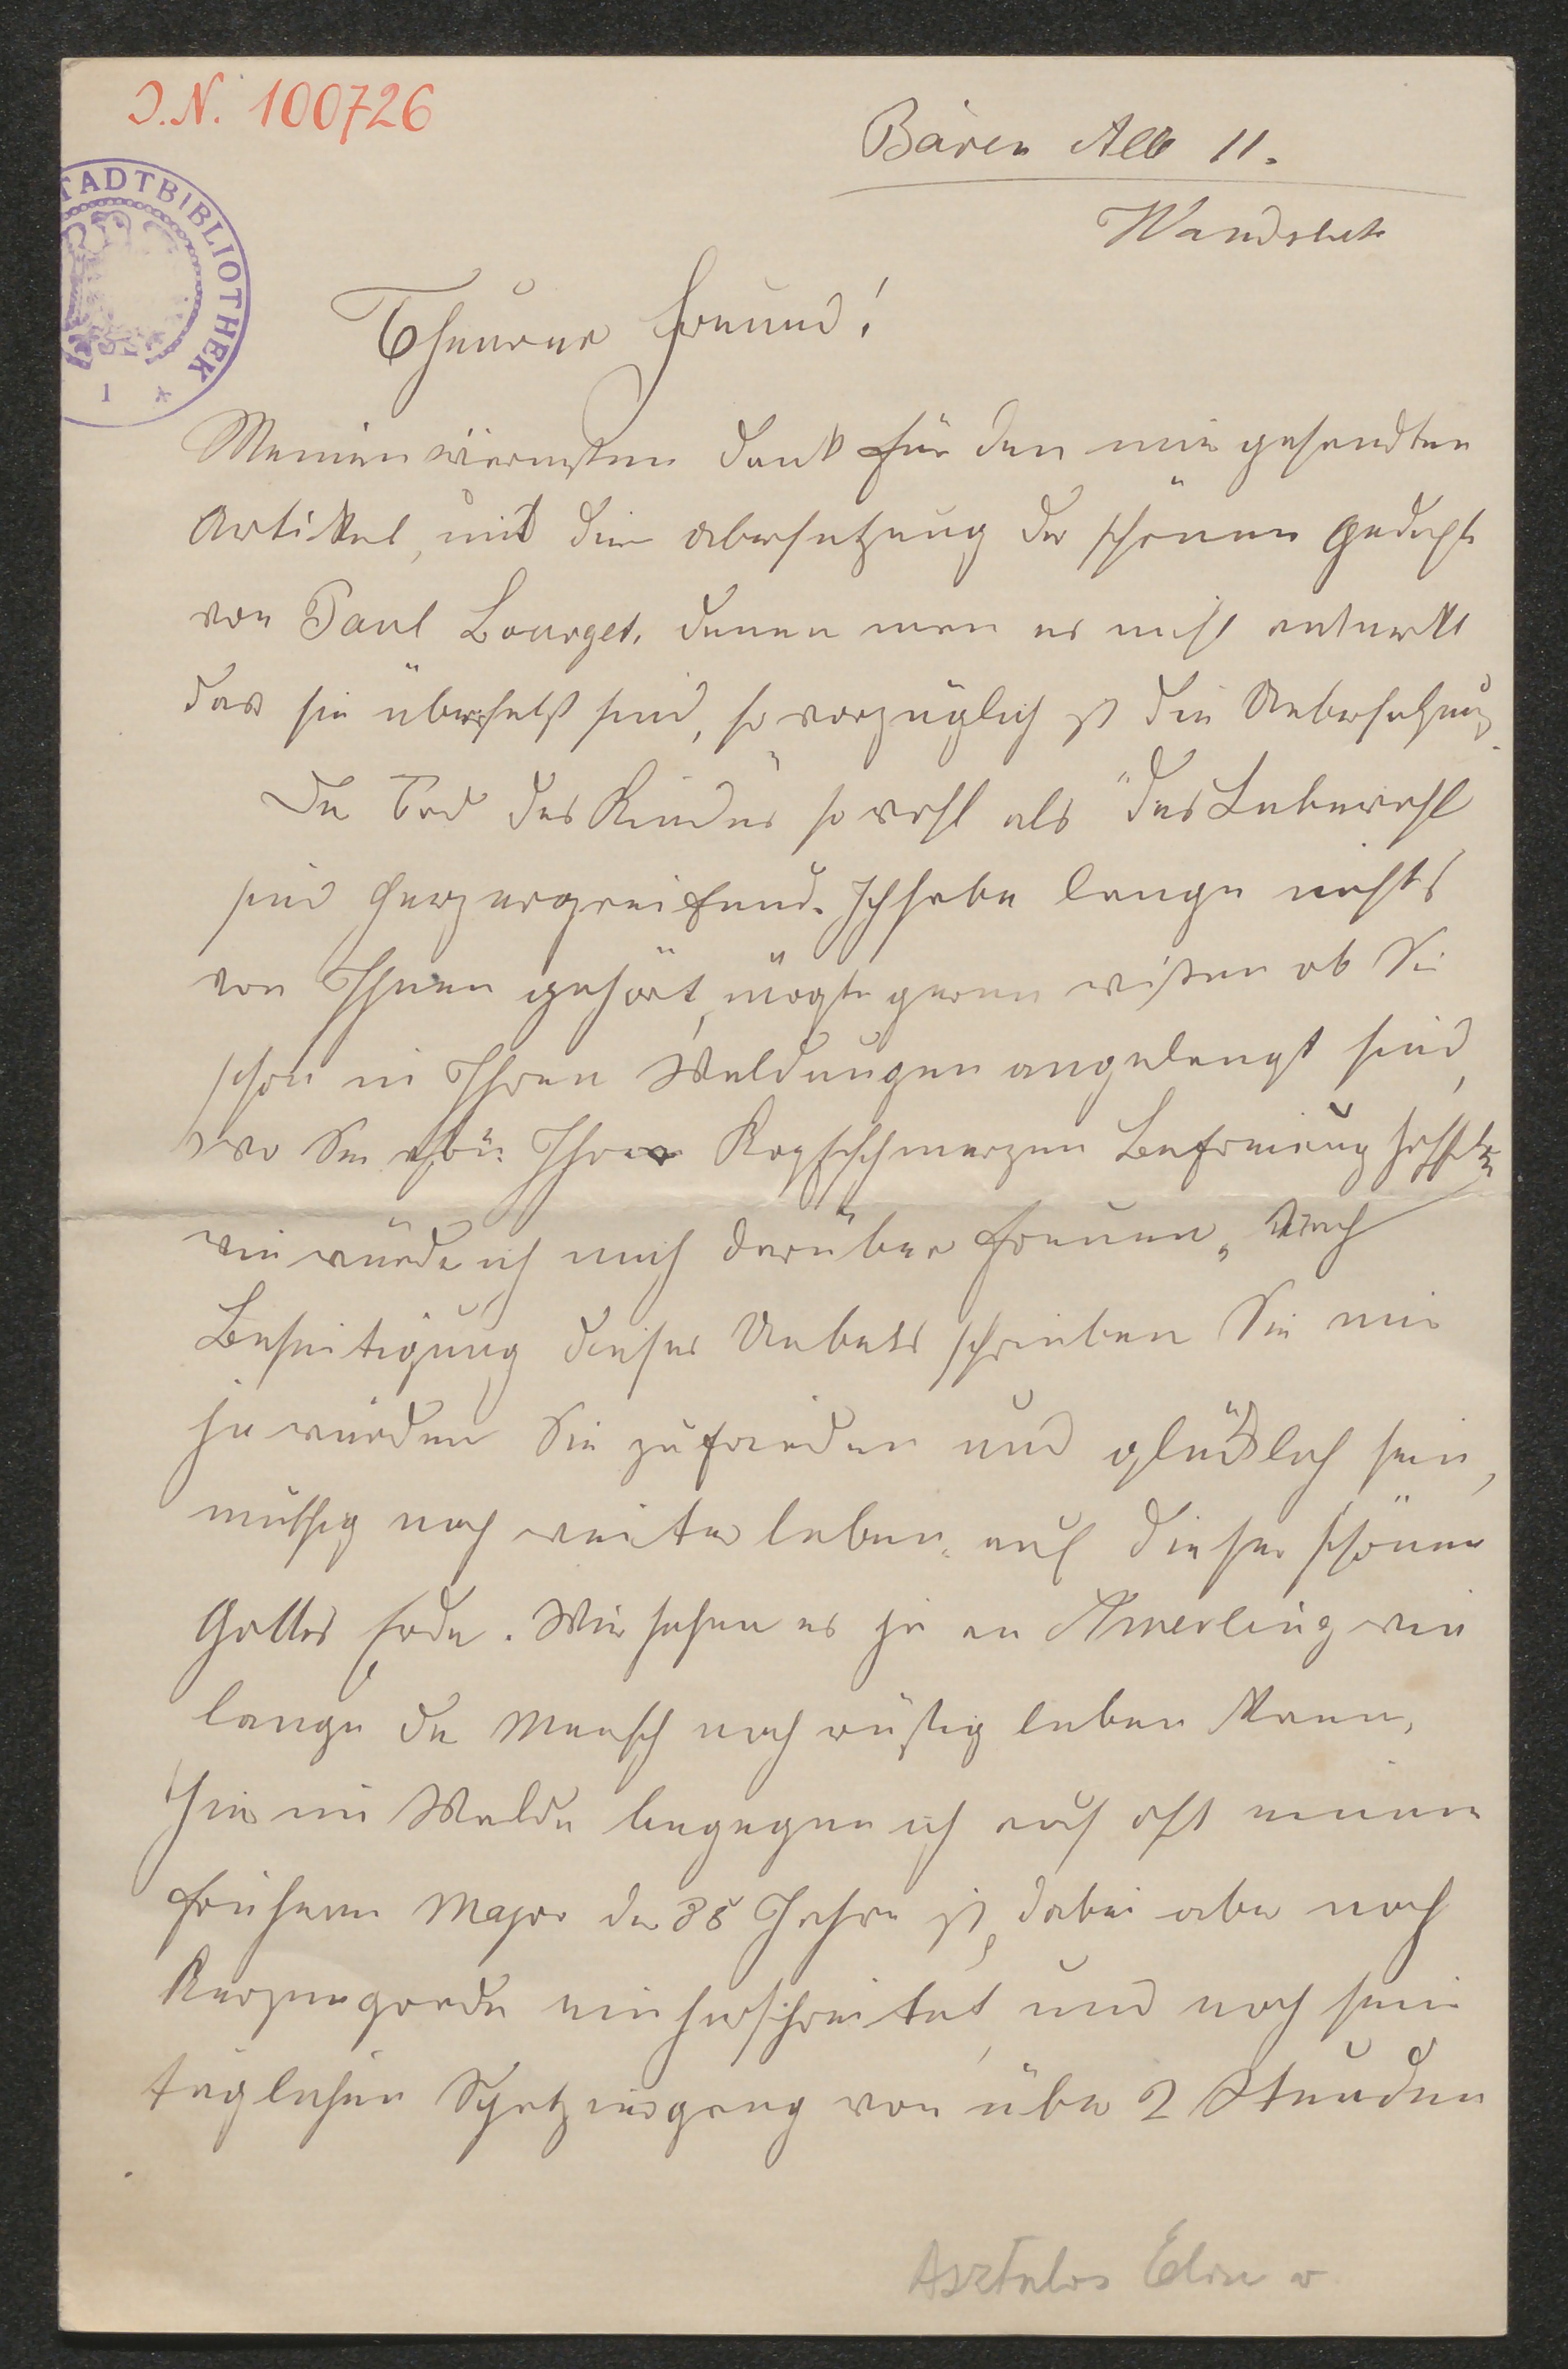 J.N. 100726
STADTBIBLIOTHEK
1 *
Bären Allee 11.
Wandsbek
Theurer Freund!
Meinen wärmsten Dank für den mir gesendten
Artikel, mit die Uebersetzung der schönen Gedichte
von Paul Bourget. denen man es nicht anmerkt
das sie übersetzt sind, so vorzüglich ist die Uebersetzung.
Der Tod des Kindes" so wohl als "das Lebewohl
sind herzergreifend. Ich habe lange nichts
von Ihnen gehört, mögte gerne wißen ob Sie
schon in Ihren Waldungen angelangt sind,
wo Sie von Ihren Kopfschmerzen Befreiung hofften
wie würde ich mich darüber freuen, Nach
Beseitigung dieses Uebels schrieben Sie mir
ja würden Sie zufrieden und glücklich sein,
muthig noch weiter leben, auf dieser schönen
Gottes Erde. Wir sehen es ja an Amerling wie
lange der Mensch noch rüstig leben kann,
Hier im Walde begegne ich auch oft einem
früheren Major der 88 Jahre ist, dabei aber noch
Kerzengerade einherschreitet, und noch sein
täglichen Spatziergang von über 2 Stunden
Asztalos Elise v